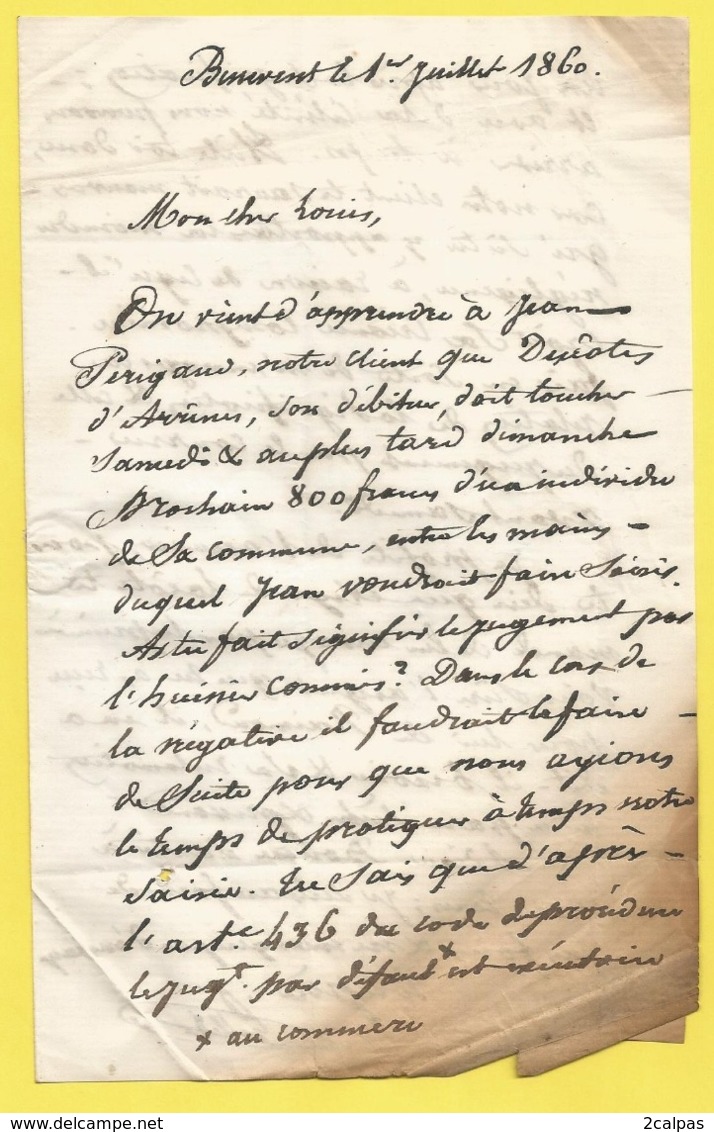 Benevent le 1er Juillet 1860.
Mon cher Louis,
On vient d'apprendre à Jean
Perigaud, notre client que
d'Arrènes, son débiteur, doit toucher
Samedi & au plus tard dimanche
prochain 800 francs d'un individu
de Sa commune, entre les mains
duquel Jean voudrait faire Saisir.
As tu fait signifier le jugement par
l'huissier commis? Dans le cas de
la négative il faudrait le faire
de Suite pour que nous ayions
le temps de pratiquer à temps notre
Saisie. Tu Sais que d'après
l'arte. 436 du code de procédure
le jugt. par défaut x est exécutoire
x au commerce
www.delcampe.net
2calpas